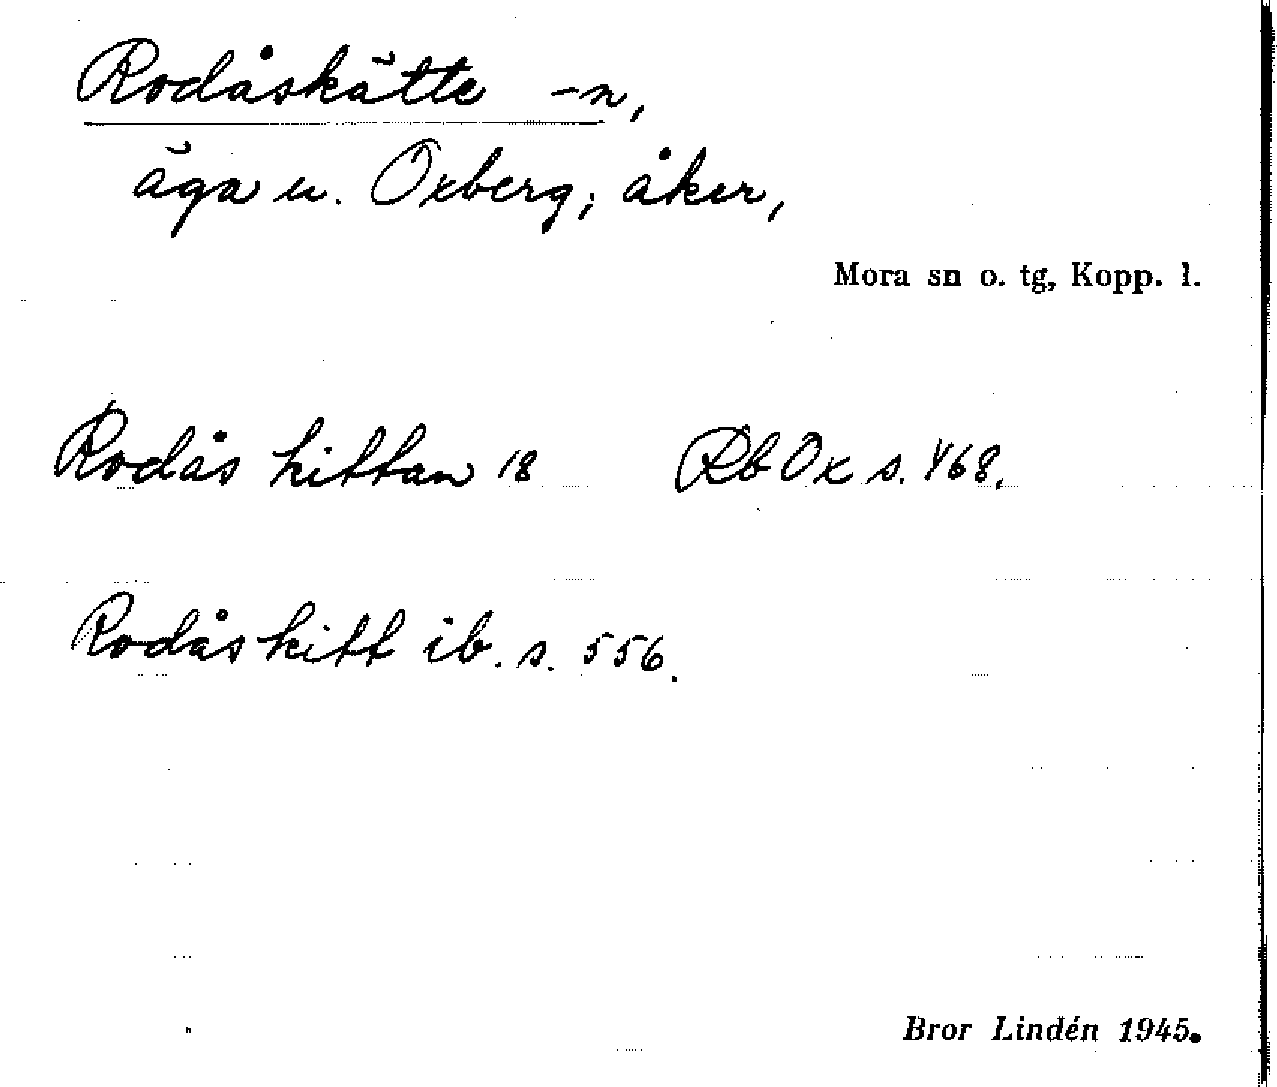 Rodåskätte -n,
äga u. Oxberg; åker,
Mora sn o. tg, Kopp. l.
Rodås kittan 18 Rb Ox s. 468.
Rodåskitt ib. s. 556.
Bror Lindén 1945.